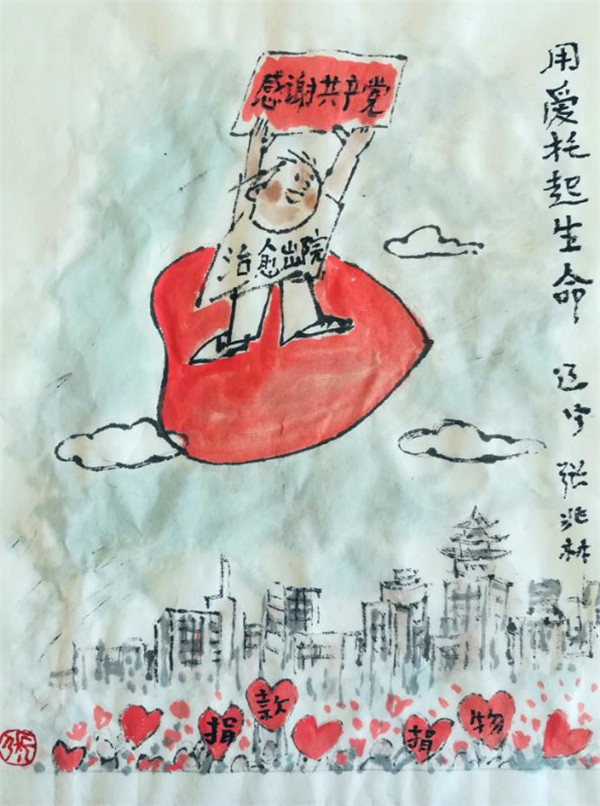 感谢共产党
治愈出院
用爱托起生命 辽宁 张兆林
捐
款
捐
物
张